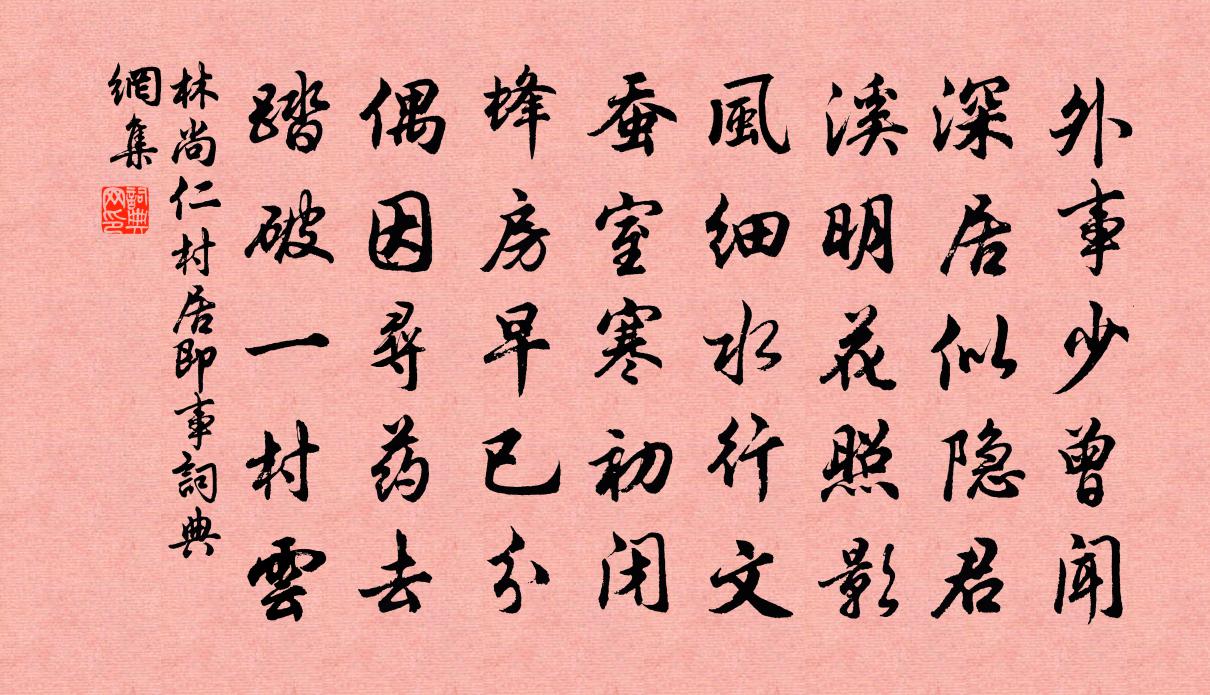 外事少曾聞
深居似隐君
溪明花照影
風細水行文
蚕室寒初闭
蜂房早已分
偶因尋药去
踏破一村雲
林尚仁村居即事詞典
網集
詞典
网印